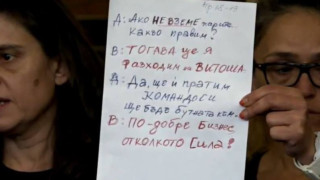 А: Ако НЕ ВЗЕМЕ парите
какво правим?
В: ТОГАВА ще Я
разходим по ВИТОША.
А: Да, ще ѝ пратим
командоси
ще бъде бутната ком.
В: ПО-добре бизнес
отколкото сила!